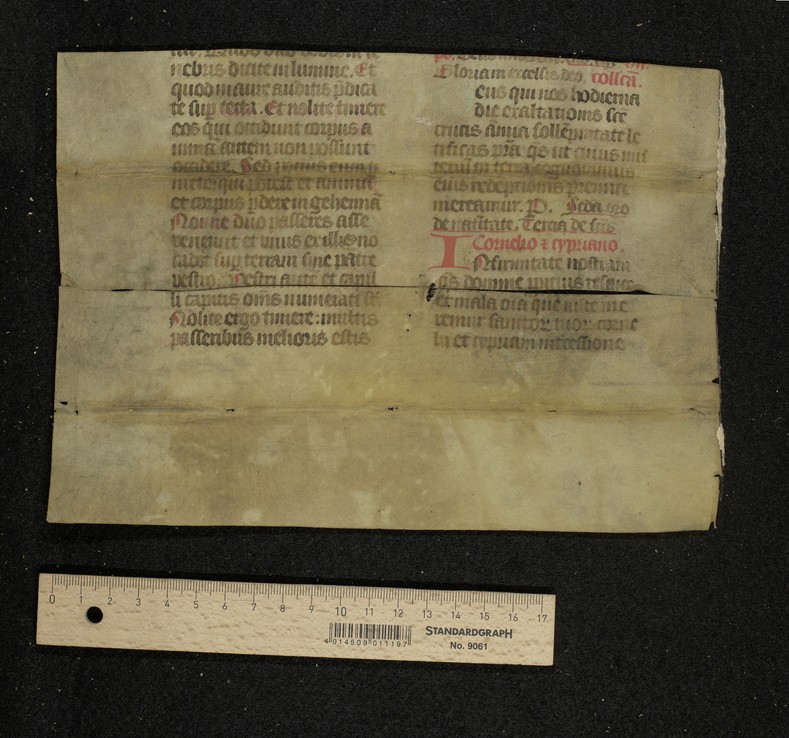 nebris dicite in lumine. Et
quod in aure auditis p̄dica
te sup tecta. Et nolite timere
eos qui occidunt corpus a
nimā autem non possunt
occidere. Sed potius eum ti
mete qui potest et animā
et corpus ꝑdere in gehennā
Nonne duo passeres asse
veneunt et unus ex illis nō
cadet sup terram sine patre
vestro. Vestri autē et capil
li capitis om̄s numerati st̄
Nolite ergo timere: multis
passeribus meliores estis
Gloria in excelsis deo. collcā.
eus qui nos hodierna
die exaltationis scē
crucis ānua sollēpnitate le
tificas p̄ta q̄s ut cuius mi
teriū in terra cognouimus
eius redēptionis premia
mereamur. P.
de natiuitate. Tercia de scīs
Cornelio ⁊ cypriano.
Infirmitatē nostram
q̄s domine
et mala oīa que iuste me
remur sanctoꝝ tuoꝝ corne
lii et cypriani intercessione
0 1 2 3 4 5 6 7 8 9 10 11 12 13 14 15 16 17
STANDARDGRAPH
No. 9061
4 014509 011197